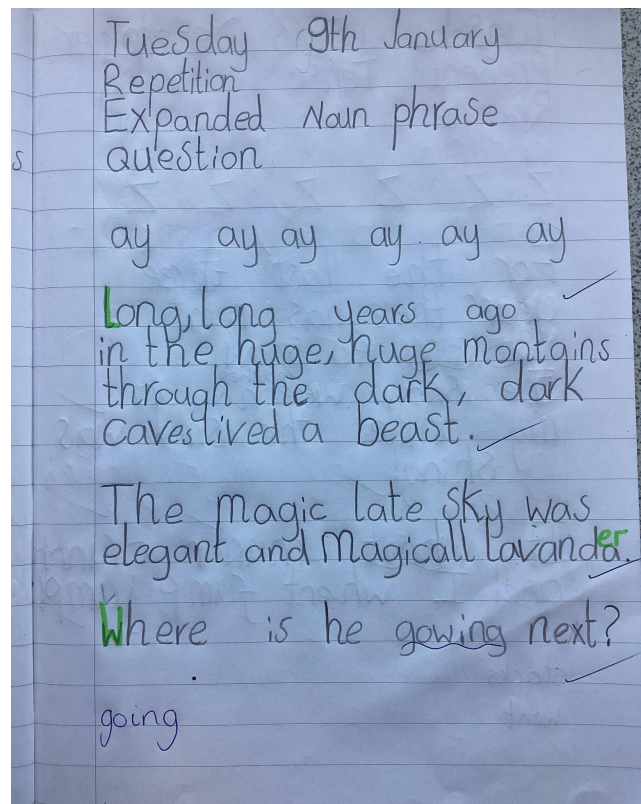 Tuesday 9th January
Repetition
Expanded Noun phrase
question
s
ay ay ay ay. ay ay
Long, long years ago
in the huge, huge montains
through the dark, dark
caves lived a beast.
The magic late sky was
elegant and Magicall lavander.
Where is he gowing next?
going